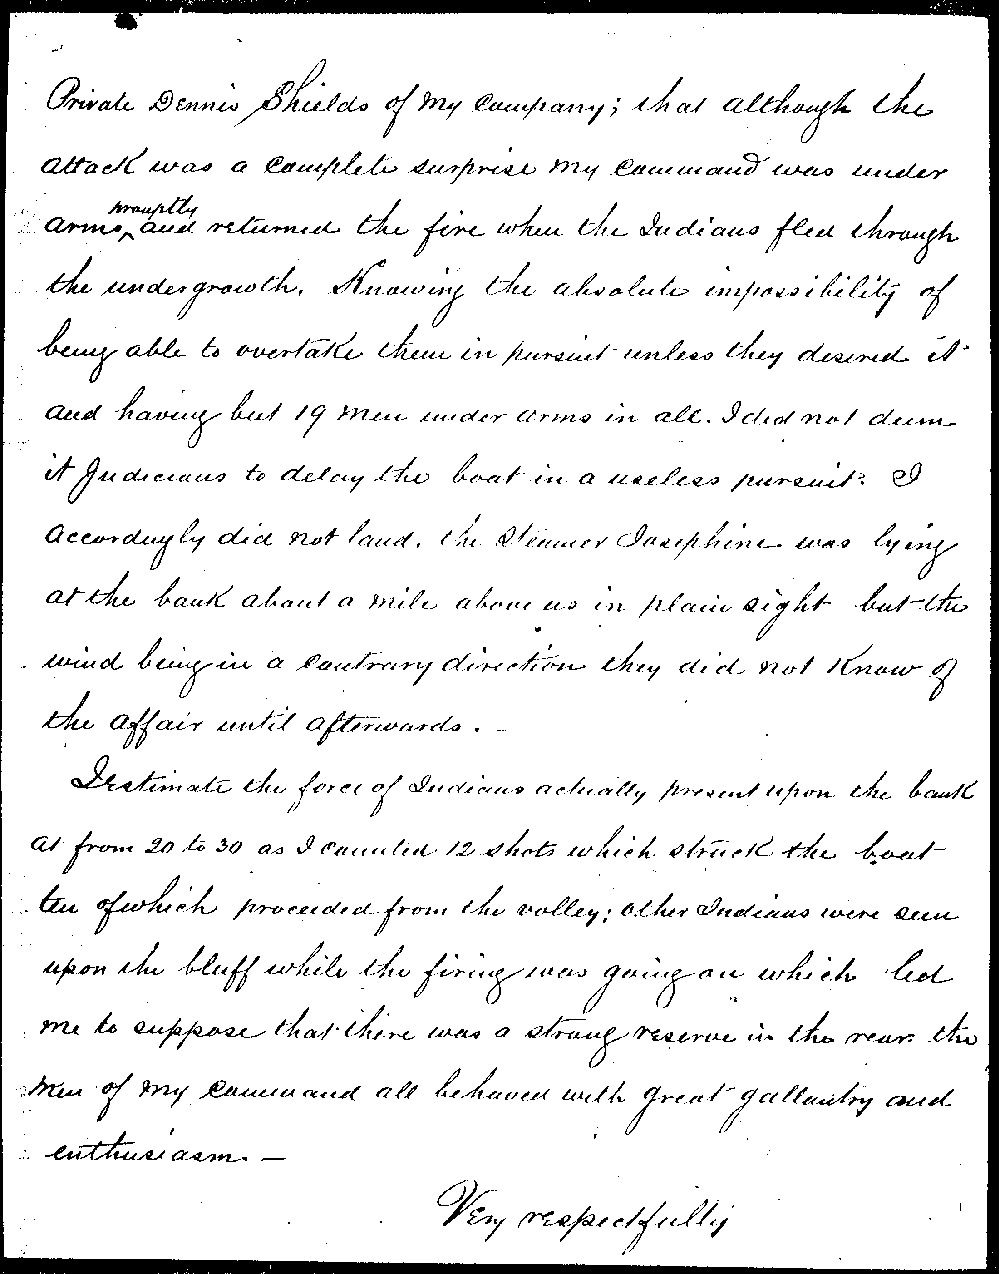 Private Dennis Shields of my company; that although the
attack was a complete surprise my command was under
promptly
arms, and returned the fire when the Indians fled through
the undergrowth. Knowing the absolute impossibility of
being able to overtake them in pursuit unless they desired it
and having but 19 men under arms in all. I did not deem
it Judicious to delay the boat in a useless pursuit. I
accordingly did not land. the Steamer Josephine was lying
at the bank about a mile above us in plain sight but the
wind being in a contrary direction they did not know of
the affair until afterwards. –
I estimate the force of Indians actually present upon the bank
at from 20 to 30 as I counted 12 shots which struck the boat
ten of which proceeded from the volley; other Indians were seen
upon the bluff while the firing was going on which led
me to suppose that there was a strong reserve in the rear. the
men of my command all behaved with great gallantry and
enthusiasm. –
Very respectfully